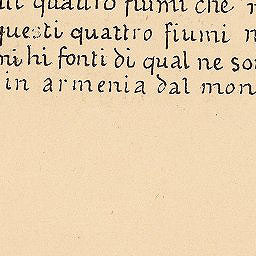 quattro fiumi che
questi quattro fiumi
hi fonti di qual ne
in armenia dal mon